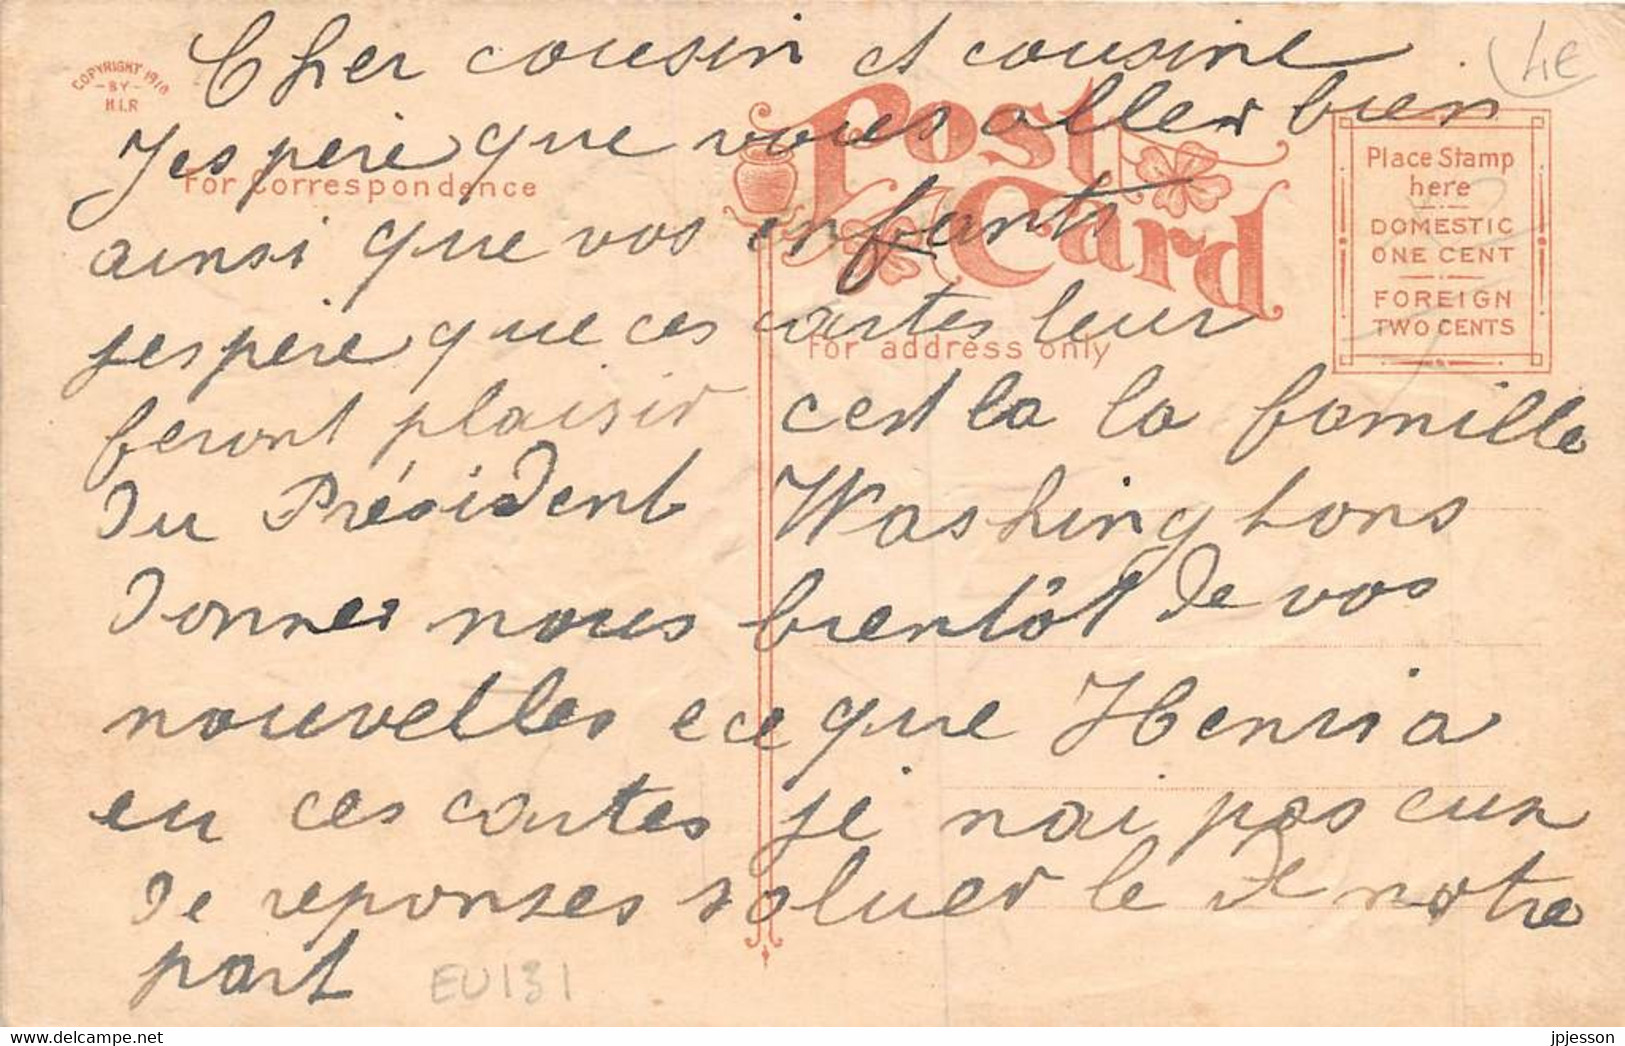 Cher cousin et cousine
4€
COPYRIGHT 1910
- BY -
H.I.R
Post Card
Jespere que vous aller bien
For Correspondence
Place Stamp
here
DOMESTIC
ONE CENT
FOREIGN
TWO CENTS
ainsi que vos enfants
jespère que ces cartes leur
For address only
feront plaisir cest la la famille
Du Président Washingtons
Donner nous bientôt de vos
nouvelles ece que Henri a
eu ces cartes je nai pas eux
De reponses saluer le de notre
part
EU131
jpjesson